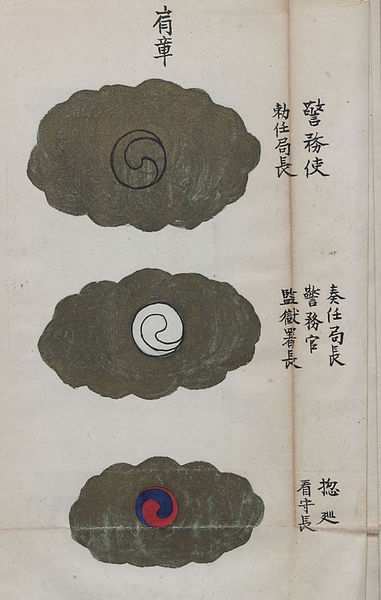 肩章
警務使
勅任局長
奏任局長
警務官
監獄署長
揔廵
看守長